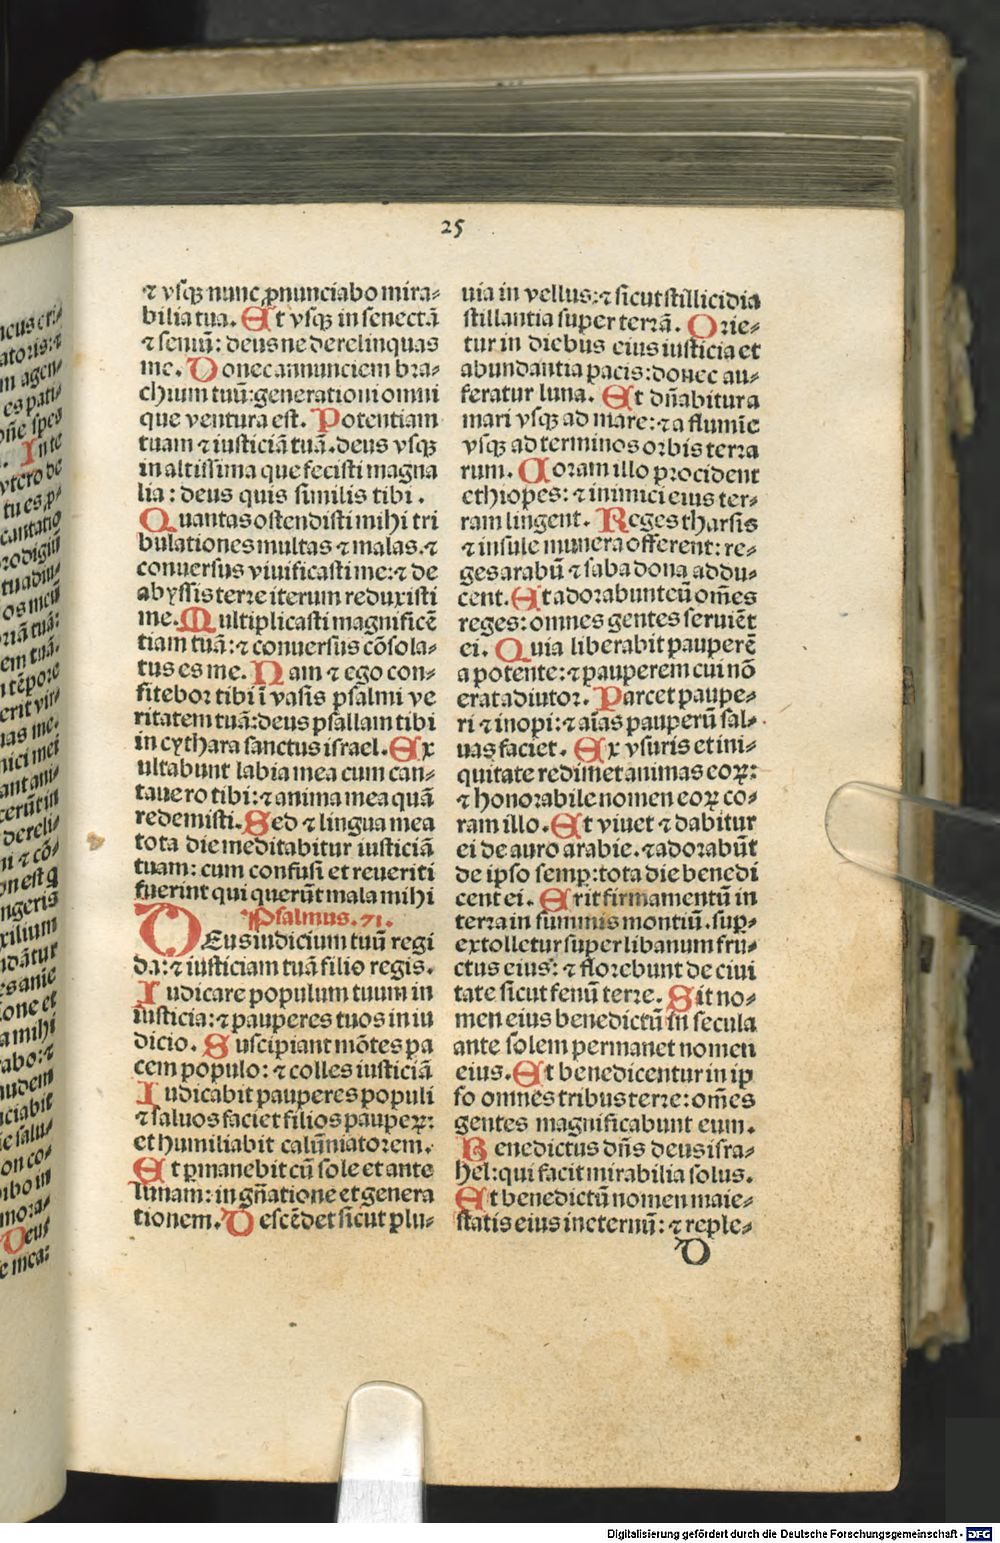 25
⁊ vsqꝫ nunc ꝓnunciabo mira⸗
bilia tua. Et vsqꝫ in senectā
⁊ seniū: deus ne derelinquas
me. Donec annunciem bra⸗
chium tuū: generationi omni
que ventura est. Potentiam
tuam ⁊ iusticiā tuā. deus vsqꝫ
in altissima que fecisti magna
lia: deus quis similis tibi.
Quantas ostendisti mihi tri
bulationes multas ⁊ malas. ⁊
conuersus viuificasti me: ⁊ de
abyssis terre iterum reduxisti
me. Multiplicasti magnificē
tiam tuā: ⁊ conuersus cōsola⸗
tus es me. Nam ⁊ ego con⸗
fitebor tibi ī vasis psalmi ve
ritatem tuā: deus psallam tibi
in cythara sanctus israel. Ex
ultabunt labia mea cum can⸗
tauero tibi: ⁊ anima mea quā
redemisti. Sed ⁊ lingua mea
tota die meditabitur iusticiā
tuam: cum confusi et reueriti
fuerint qui querūt mala mihi
Psalmus. 71.
DEus iudicium tuū regi
da: ⁊ iusticiam tuā filio regis.
Iudicare populum tuum in
iusticia: ⁊ pauperes tuos in iu
dicio. Suscipiant mōtes pa
cem populo: ⁊ colles iusticiā
Iudicabit pauperes populi
⁊ saluos faciet filios pauperꝝ:
et humiliabit calūniatorem.
Et ꝑmanebit cū sole et ante
lunam: in gn̄atione et genera
tionem. Descēdet sicut plu⸗
uia in vellus: ⁊ sicut stillicidia
stillantia super terrā. Orie⸗
tur in diebus eius iusticia et
abundantia pacis: donec au⸗
feratur luna. Et dn̄abitur a
mari vsqꝫ ad mare: ⁊ a flumīe
vsqꝫ ad terminos orbis terra
rum. Coram illo procident
ethiopes: ⁊ inimici eius ter⸗
ram lingent. Reges tharsis
⁊ insule munera offerent: re⸗
ges arabū ⁊ saba dona addu⸗
cent. Et adorabunt eū om̄es
reges: omnes gentes seruiēt
ei. Quia liberabit pauperē
a potente: ⁊ pauperem cui nō
erat adiutor. Parcet paupe⸗
ri ⁊ inopi: ⁊ aīas pauperū sal⸗
uas faciet. Ex vsuris et ini⸗
quitate redimet animas eoꝝ:
⁊ honorabile nomen eoꝝ co⸗
ram illo. Et viuet ⁊ dabitur
ei de auro arabie. ⁊ adorabūt
de ipso semꝑ: tota die benedi
cent ei. Erit firmamentū in
terra in summis montiū. suꝑ⸗
extolletur super libanum fru⸗
ctus eius: ⁊ florebunt de ciui
tate sicut fenū terre. Sit no⸗
men eius benedictū in secula
ante solem permanet nomen
eius. Et benedicentur in ip
so omnes tribus terre: om̄es
gentes magnificabunt eum.
Benedictus dn̄s deus isra⸗
hel: qui facit mirabilia solus.
Et benedictū nomen maie⸗
statis eius in eternū: ⁊ reple⸗
D
Digitalisierung gefördert durch die Deutsche Forschungsgemeinschaft - DFG